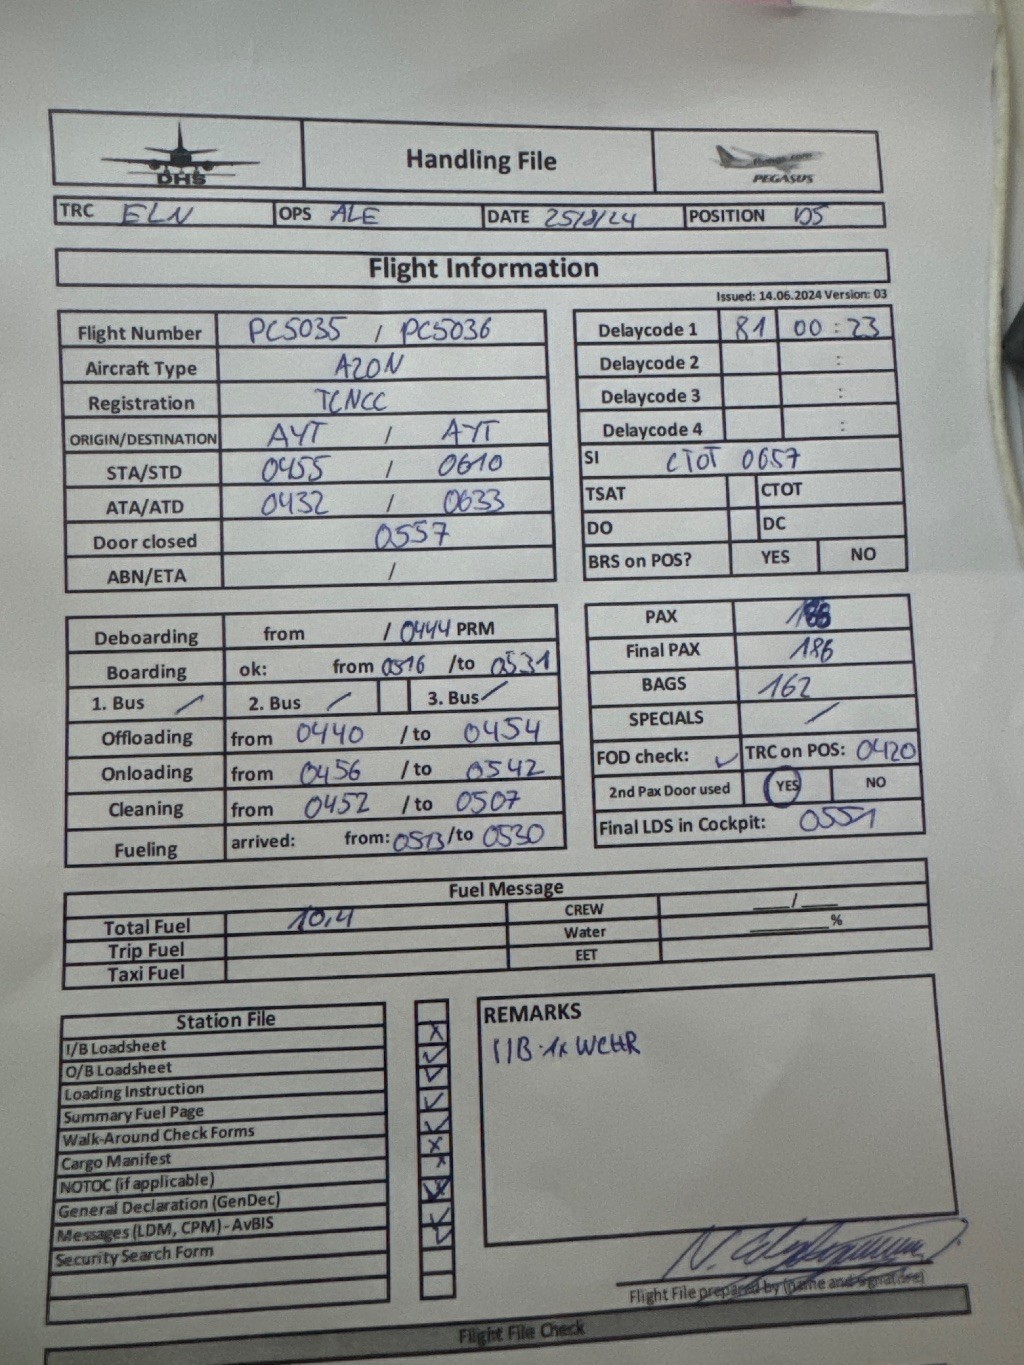 DHS
Handling File
PEGASUS
TRC ELN OPS ALE DATE 25/8/24 POSITION V05
Flight Information
Issued: 14.06.2024 Version: 03
Flight Number PC5035 / PC5036
Aircraft Type A20N
Registration TCNCC
ORIGIN/DESTINATION AYT / AYT
STA/STD 0455 / 0610
ATA/ATD 0432 / 0633
Door closed 0557
ABN/ETA /
Delaycode 1 81 00:23
Delaycode 2 :
Delaycode 3 :
Delaycode 4 :
SI CTOT 0657
TSAT CTOT
DO DC
BRS on POS? YES NO
Deboarding from / 0444 PRM
Boarding ok: from 0516 /to 0531
1. Bus / 2. Bus / 3. Bus /
Offloading from 0440 /to 0454
Onloading from 0456 /to 0542
Cleaning from 0452 /to 0507
Fueling arrived: from: 0513 /to 0530
PAX
Final PAX 186
BAGS 162
SPECIALS /
FOD check: ✓ TRC on POS: 0420
2nd Pax Door used YES NO
Final LDS in Cockpit: 0551
Fuel Message
Total Fuel 10,4 CREW ___/___
Trip Fuel Water ______%
Taxi Fuel EET
Station File
I/B Loadsheet
O/B Loadsheet
Loading Instruction
Summary Fuel Page
Walk-Around Check Forms
Cargo Manifest
NOTOC (if applicable)
General Declaration (GenDec)
Messages (LDM, CPM) - AvBIS
Security Search Form
REMARKS
I/B 1x WCHR
Flight File prepared by (name and signature)
Flight File Check